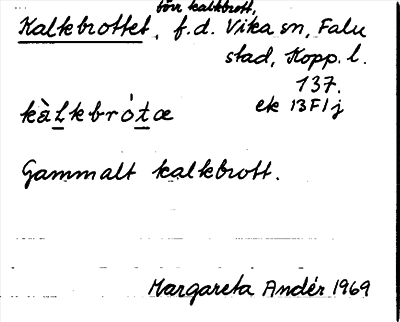 böv kalkbrott,
Kalkbrottet, f.d. Vika sn, Falu
stad, Kopp. l.
137.
ek 13F1j
kàlkbró̀tæ
Gammalt kalkbrott.
Margareta Andér 1969